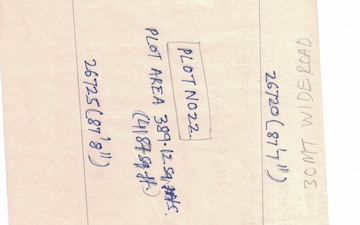 30MT WIDEROAD
26720 (87'7")
PLOT NO 22.
PLOT AREA 389.12.Sq.mts.
(4187 sq.ft.)
26725 (87'8")